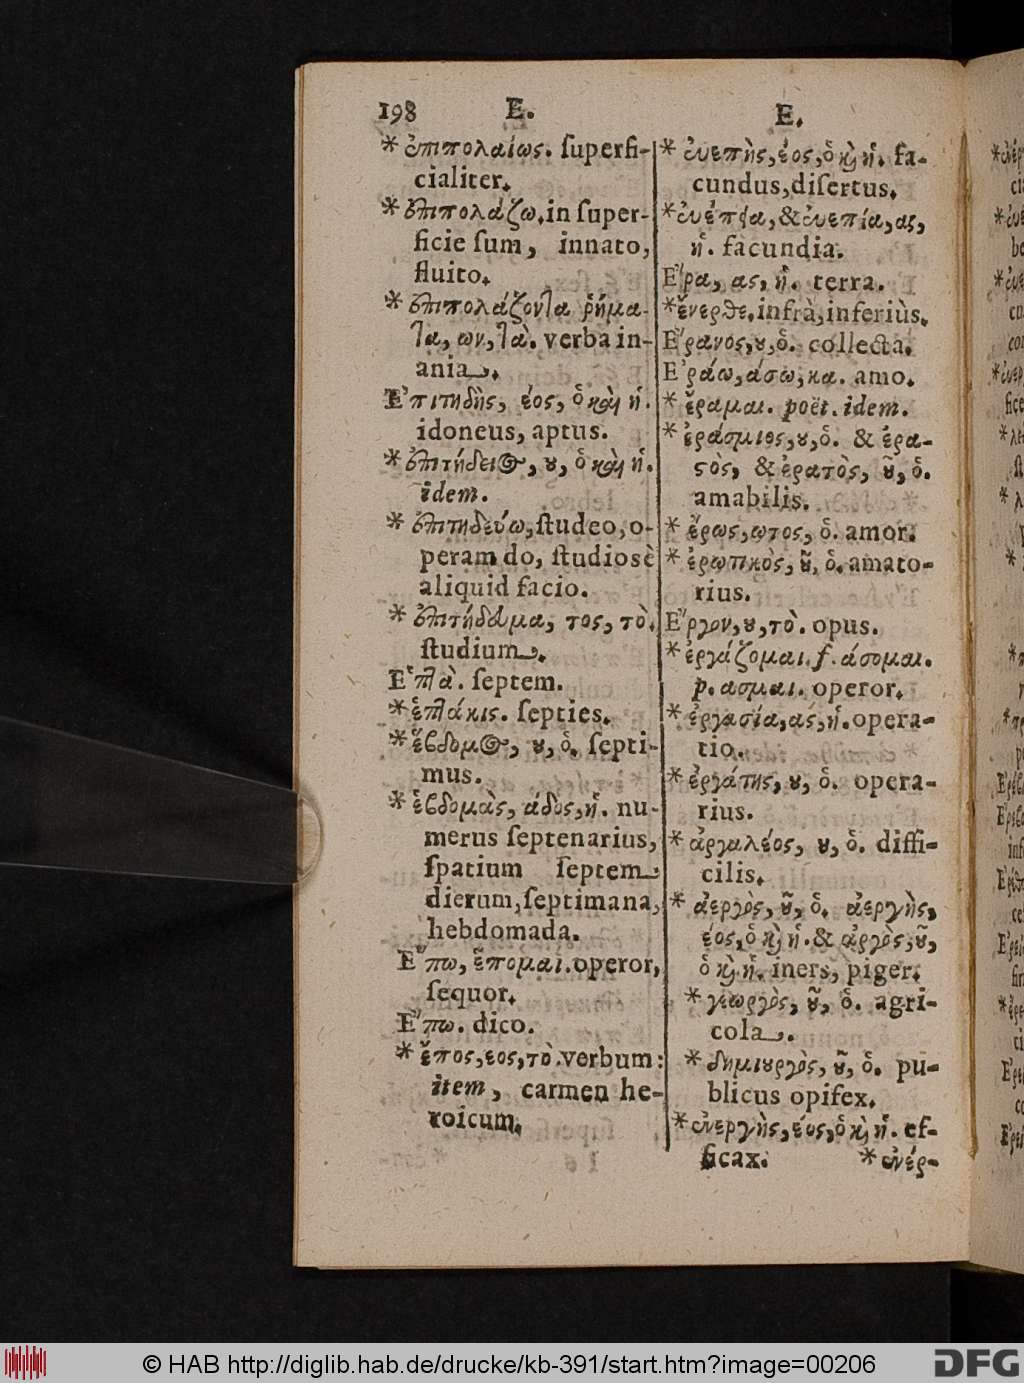 198 E.
* ἐπιπολαίως. ſuperfi-
cialiter.
* ἐπιπολάζω. in ſuper-
ficie ſum, innato,
fluito.
* ἐπιπολάζοντα ῥήμα-
τα, ων, τὰ. verba in-
ania.
Ἐπιτηδὴς, έος, ὁ καὶ ἡ.
idoneus, aptus.
* ἐπιτήδειος, ου, ὁ καὶ ἡ.
idem.
* ἐπιτηδεύω, ſtudeo, o-
peram do, ſtudioſè
aliquid facio.
* ἐπιτήδευμα, τος, τὸ.
ſtudium.
Ἑπτὰ. ſeptem.
* ἑπτάκις. ſepties.
* ἕβδομος, ου, ὁ. ſepti-
mus.
* ἑβδομὰς, άδος, ἡ. nu-
merus ſeptenarius,
ſpatium ſeptem
dierum, ſeptimana,
hebdomada.
Ἕπω, ἕπομαι. operor,
ſequor.
Ἔπω. dico.
* ἔπος, εος, τὸ. verbum:
item, carmen he-
roicum.
E.
* ἐυεπὴς, έος, ὁ καὶ ἡ. fa-
cundus, diſertus.
* ἐυέπεια, & ἐυεπία, ας,
ἡ. facundia.
Ἔρα, ας, ἡ. terra.
* ἔνερθε. infrà, inferiùs.
Ἔρανος, ου, ὁ. collecta.
Ἐράω, άσω, κα. amo.
* ἔραμαι. poët. idem.
* ἐράσμιος, ου, ὁ. & ἐρα-
στὸς, & ἐρατὸς, οῦ, ὁ.
amabilis.
* ἔρως, ωτος, ὁ. amor.
* ἐρωτικὸς, οῦ, ὁ. amato-
rius.
Ἔργον, ου, τὸ. opus.
* ἐργάζομαι. f. άσομαι.
p. ασμαι. operor.
* ἐργασία, ας, ἡ. opera-
tio.
* ἐργάτης, ου, ὁ. opera-
rius.
* ἀργαλέος, ου, ὁ. diffi-
cilis.
* ἀεργὸς, οῦ, ὁ. ἀεργὴς,
έος, ὁ καὶ ἡ. & ἀργὸς, οῦ,
ὁ καὶ ἡ. iners, piger.
* γεωργὸς, οῦ, ὁ. agri-
cola.
* δημιουργὸς, οῦ, ὁ. pu-
blicus opifex.
* ἐνεργὴς, έος, ὁ καὶ ἡ. ef-
ficax. * ἐνέρ-
© HAB http://diglib.hab.de/drucke/kb-391/start.htm?image=00206
DFG